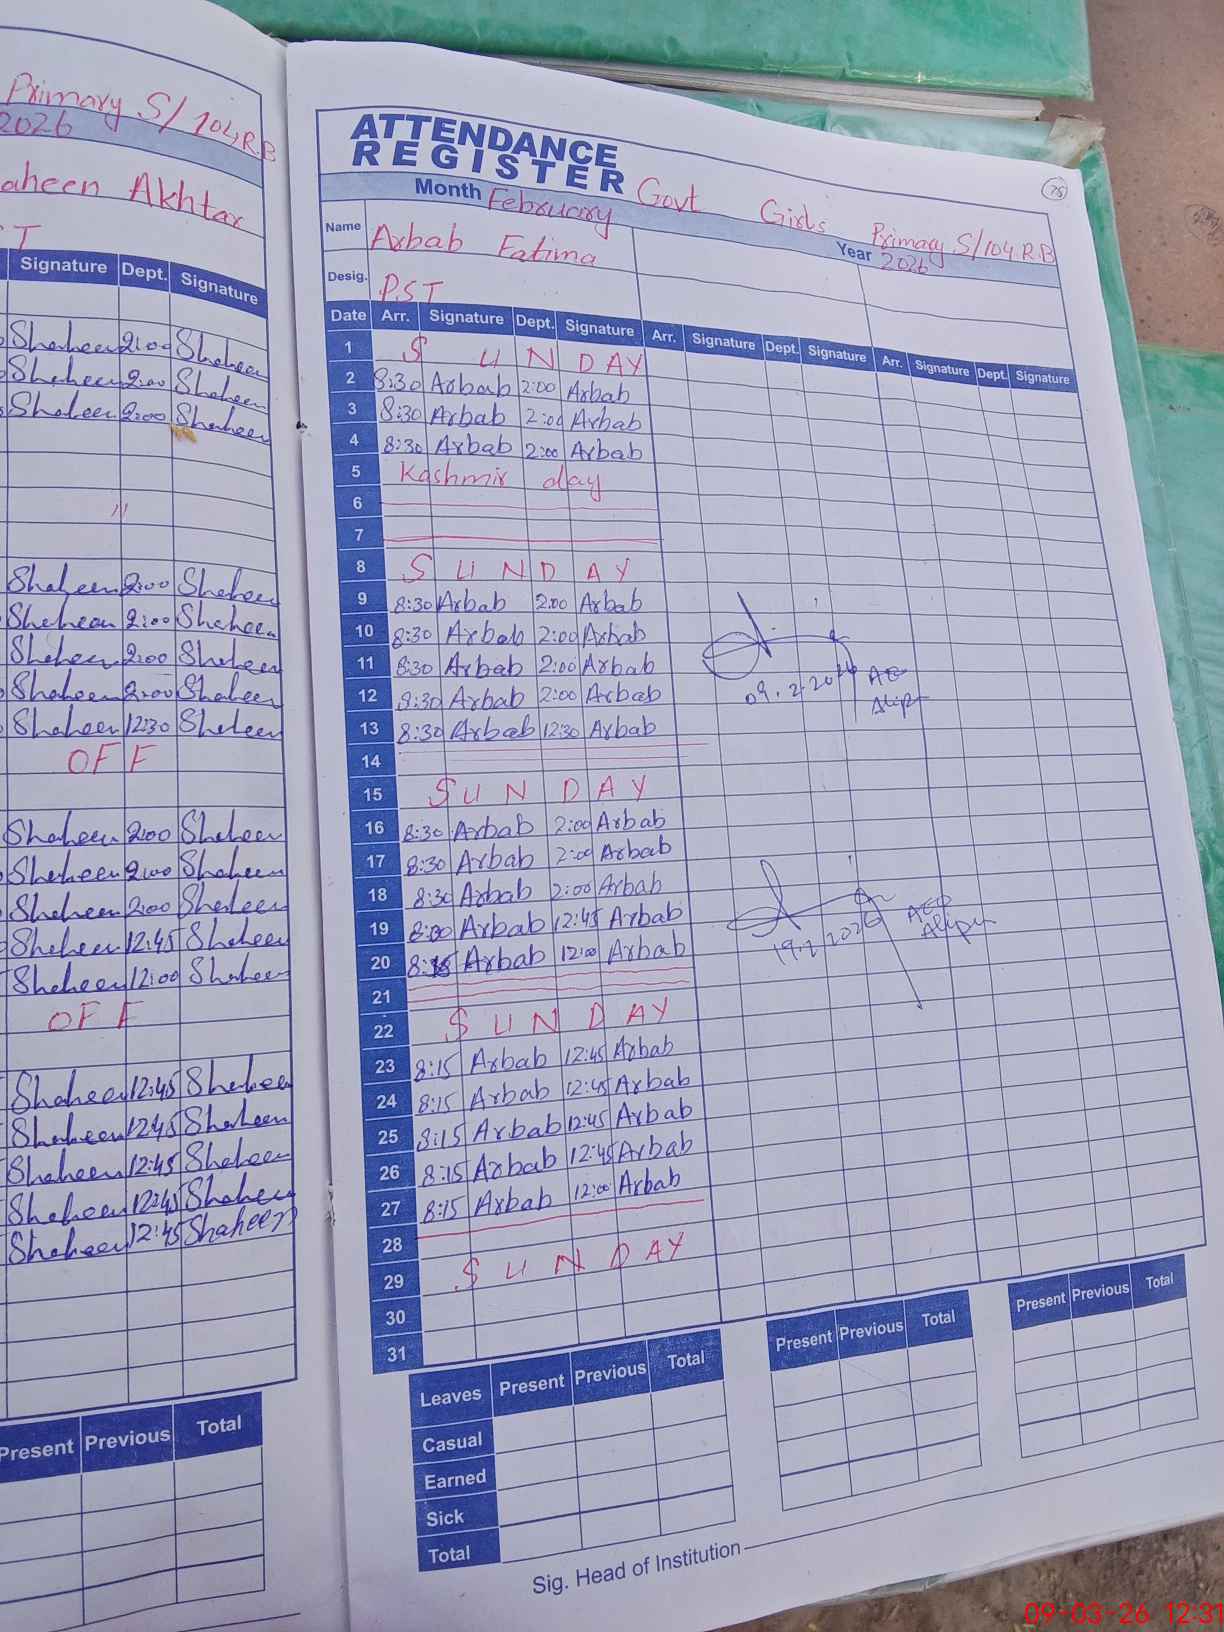 Primary S/104 R.B
2026
aheen Akhtar
Signature Dept. Signature
Shaheen 2:00 Shaheen
Shaheen 2:00 Shaheen
Shaheen 2:00 Shaheen
"
Shaheen 2:00 Shaheen
Shaheen 2:00 Shaheen
Shaheen 2:00 Shaheen
Shaheen 2:00 Shaheen
Shaheen 12:30 Shaheen
OFF
Shaheen 2:00 Shaheen
Shaheen 2:00 Shaheen
Shaheen 2:00 Shaheen
Shaheen 12:45 Shaheen
Shaheen 12:00 Shaheen
OFF
Shaheen 12:45 Shaheen
Shaheen 12:45 Shaheen
Shaheen 12:45 Shaheen
Shaheen 12:45 Shaheen
Shaheen 12:45 Shaheen
Present Previous Total
ATTENDANCE
REGISTER
75
Month February Govt Girls Primary S/104 R.B
Year 2026
Name Arbab Fatima
Desig. PST
Date Arr. Signature Dept. Signature Arr. Signature Dept. Signature Arr. Signature Dept. Signature
1 SUNDAY
2 8:30 Arbab 2:00 Arbab
3 8:30 Arbab 2:00 Arbab
4 8:30 Arbab 2:00 Arbab
5 Kashmir day
6
7
8 SUNDAY
9 8:30 Arbab 2:00 Arbab
10 8:30 Arbab 2:00 Arbab
11 8:30 Arbab 2:00 Arbab
12 8:30 Arbab 2:00 Arbab
13 8:30 Arbab 12:30 Arbab
09.2.2026 AEO
Alipur
14
15 SUNDAY
16 8:30 Arbab 2:00 Arbab
17 8:30 Arbab 2:00 Arbab
18 8:30 Arbab 2:00 Arbab
19 8:00 Arbab 12:45 Arbab
20 8:15 Arbab 12:00 Arbab
19.2.2026 AEO
Alipur
21
22 SUNDAY
23 8:15 Arbab 12:45 Arbab
24 8:15 Arbab 12:45 Arbab
25 8:15 Arbab 12:45 Arbab
26 8:15 Arbab 12:45 Arbab
27 8:15 Arbab 12:00 Arbab
28
29 SUNDAY
30
31
Leaves Present Previous Total Present Previous Total Present Previous Total
Casual
Earned
Sick
Total
Sig. Head of Institution
09-03-26 12:31